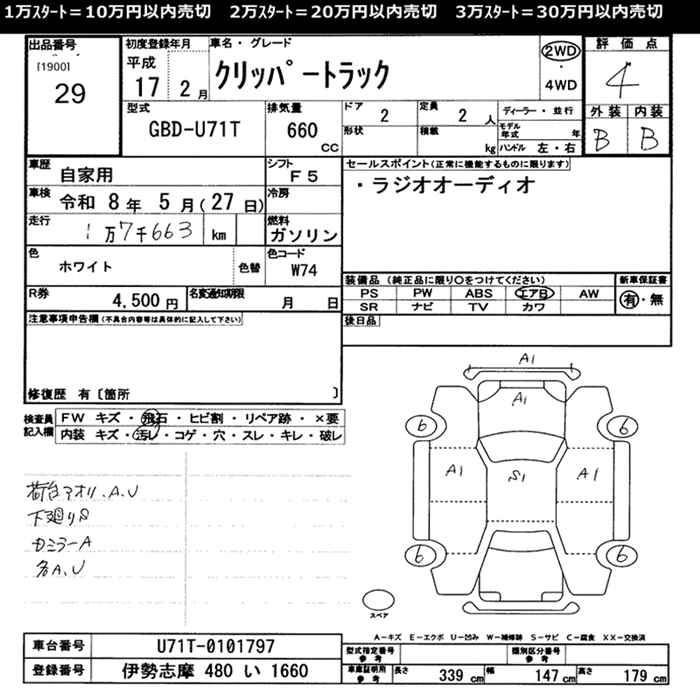 1万スタート＝10万円以内売切 2万スタート＝20万円以内売切 3万スタート＝30万円以内売切
出品番号
[1900]
29
初度登録年月
平成
17 2 月
車名・グレード
クリッパートラック
2WD
・
4WD
評価点
4
外装 内装
B B
型式
GBD-U71T
排気量
660
CC
ドア 2
形状
定員 2 人
積載 kg
ディーラー・並行
モデル年式 年
ハンドル 左・右
車歴
自家用
シフト
F5
車検
令和 8 年 5 月(27 日)
冷房
走行
1万7千663 km
燃料
ガソリン
色
ホワイト
色替
色コード
W74
R券
4,500 円
名変通知期限
月 日
セールスポイント(正常に機能するものに限ります)
・ラジオオーディオ
装備品 (純正品に限り○をつけてください)
PS PW ABS エアB AW
SR ナビ TV カワ
新車保証書
有・無
後日品
注意事項申告欄(不具合内容等は具体的に記入して下さい)
修復歴 有〔箇所 〕
検査員
記入欄
FW キズ・飛石・ヒビ割・リペア跡・×要
内装 キズ・汚レ・コゲ・穴・スレ・キレ・破レ
荷台アオリ.A.U
下廻りS
カミラーA
各A.U
A1
A1
6 6
A1 S1 A1
6 6
スペア
A-キズ E-エクボ U-凹み W-補修跡 S-サビ C-腐食 XX-交換済
車台番号
U71T-0101797
登録番号
伊勢志摩 480 い 1660
型式指定番号
参考
類別区分番号
参考
車庫証明用
参考
長さ 339 cm
幅 147 cm
高さ 179 cm